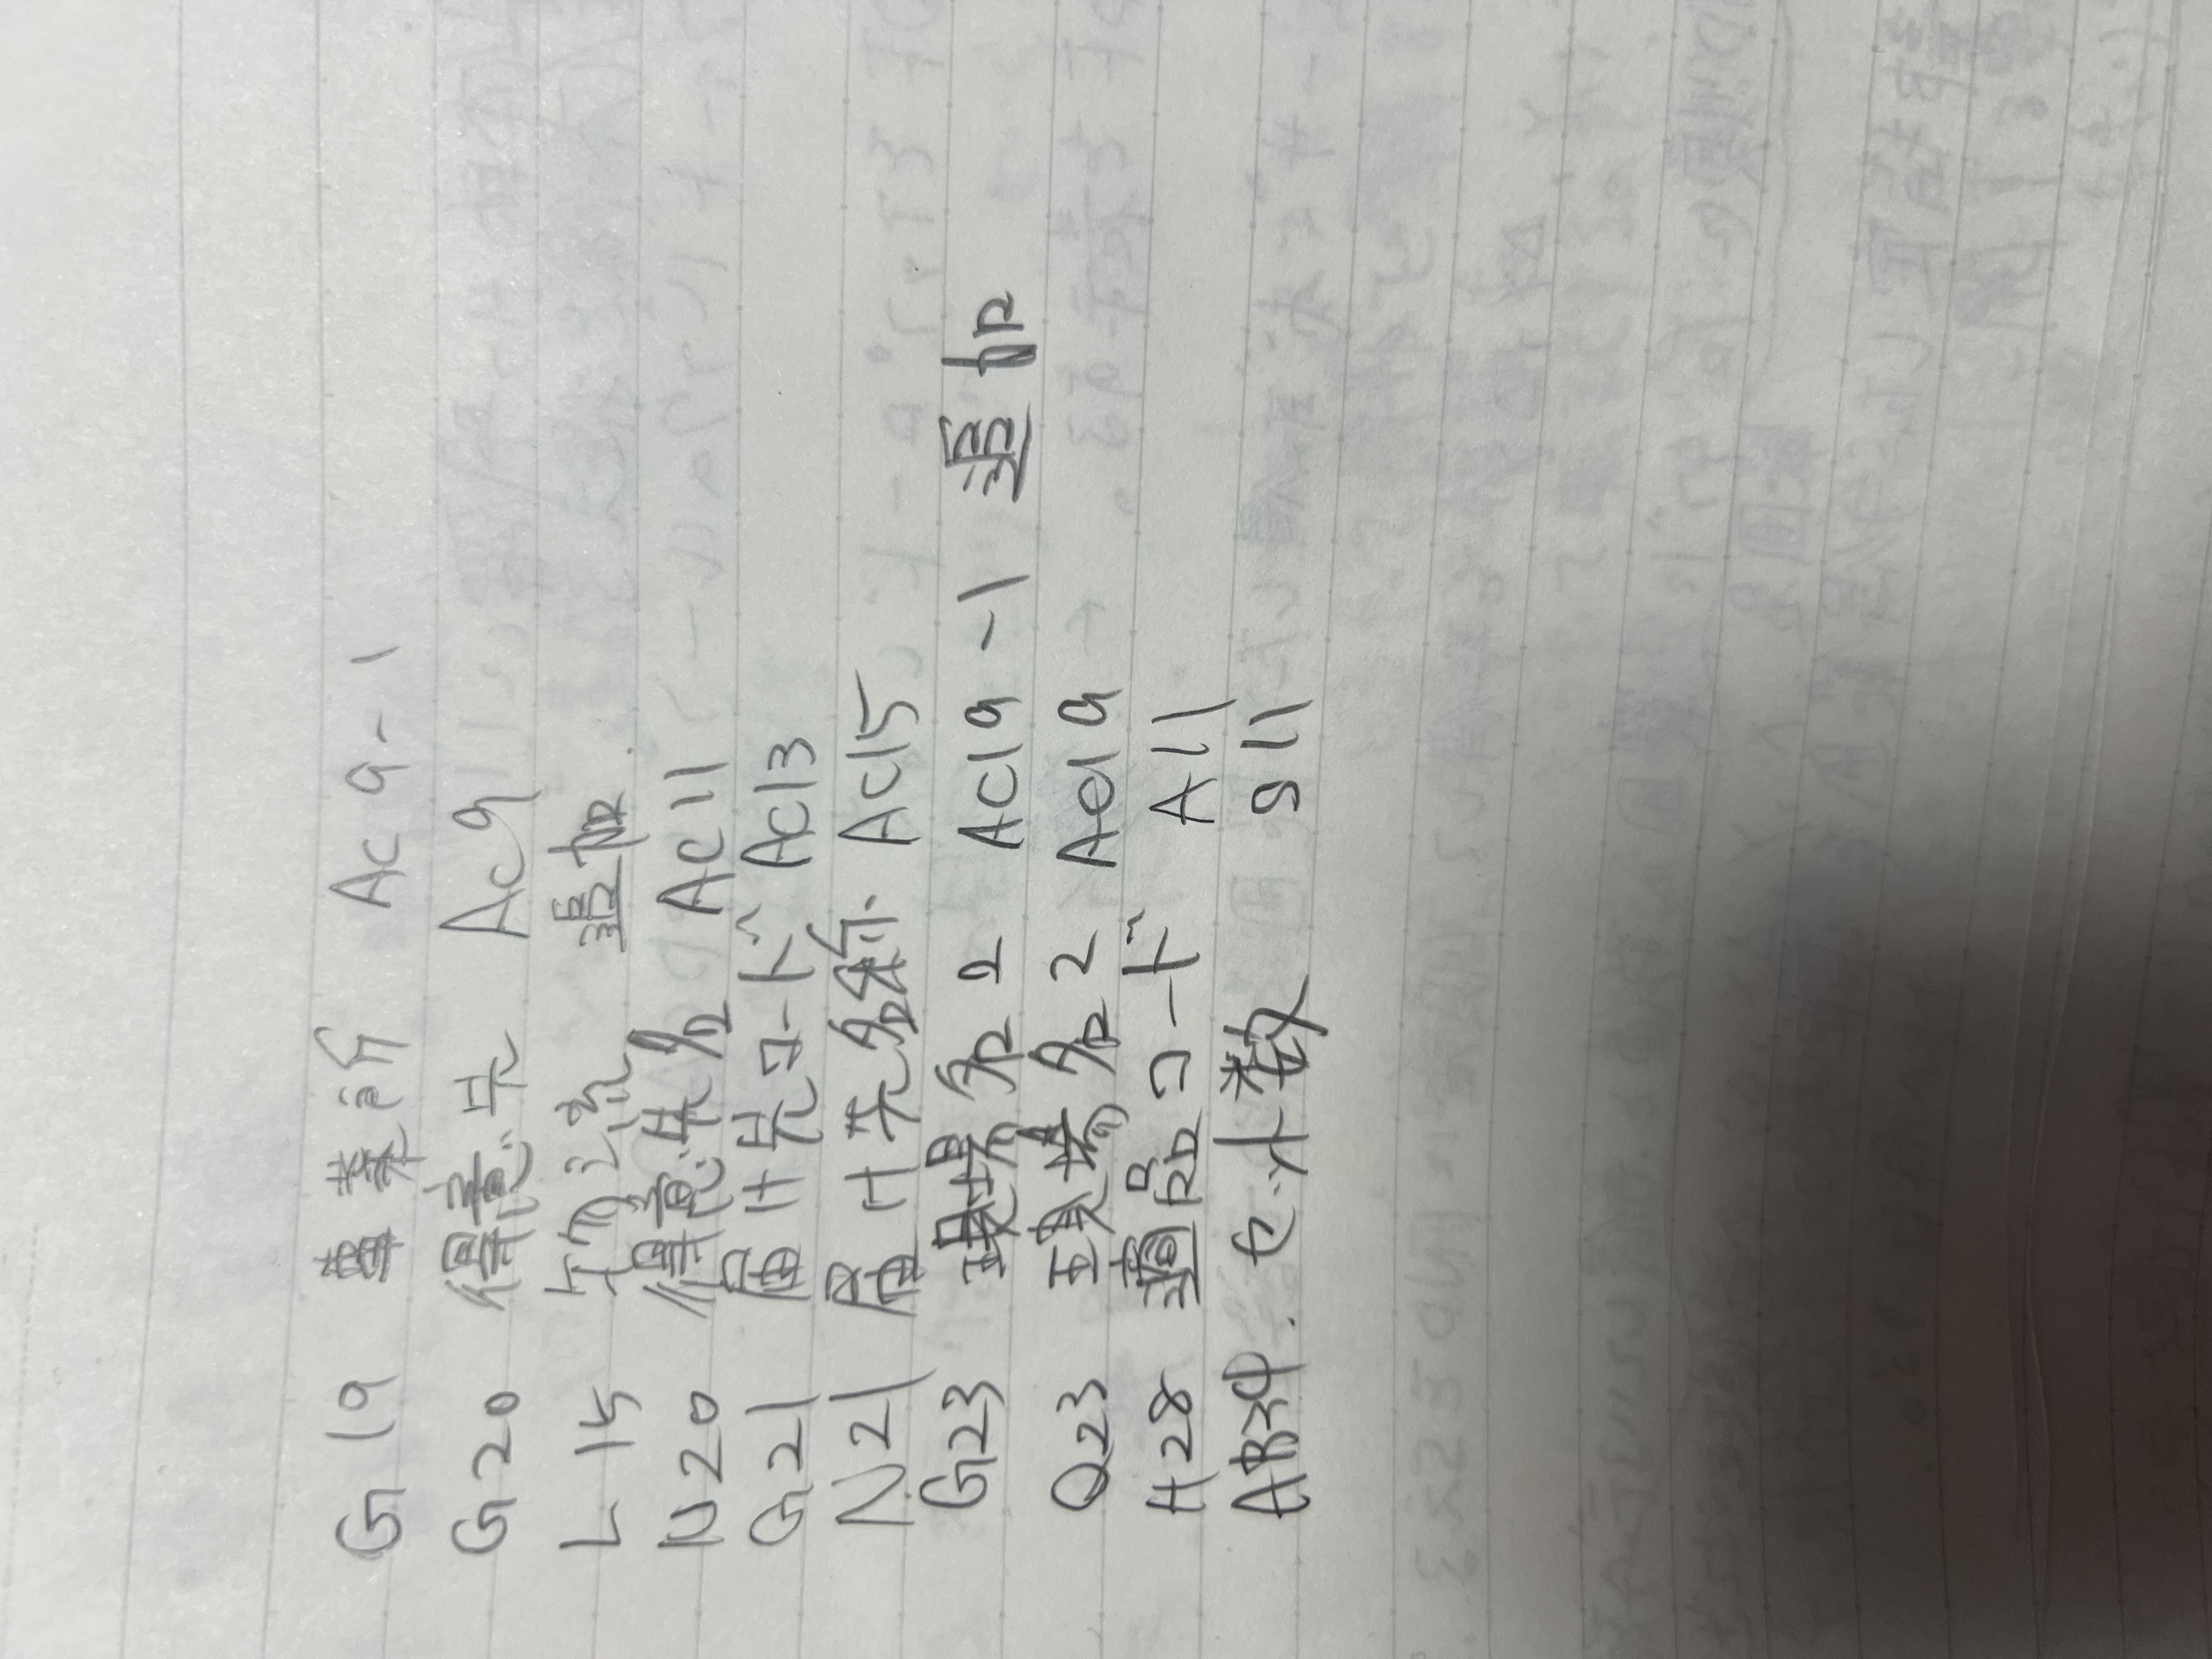 G19 事業所 AC9-1
G20 得意先 AC9
L15 物流 追加
N20 得意先名 AC11
G21 届け先コード AC13
N21 届け先名称 AC15
G23 現場名2 AC19-1 追加
Q23 現場名2 AC19
H28 コード A11
AB34. セット数 S11